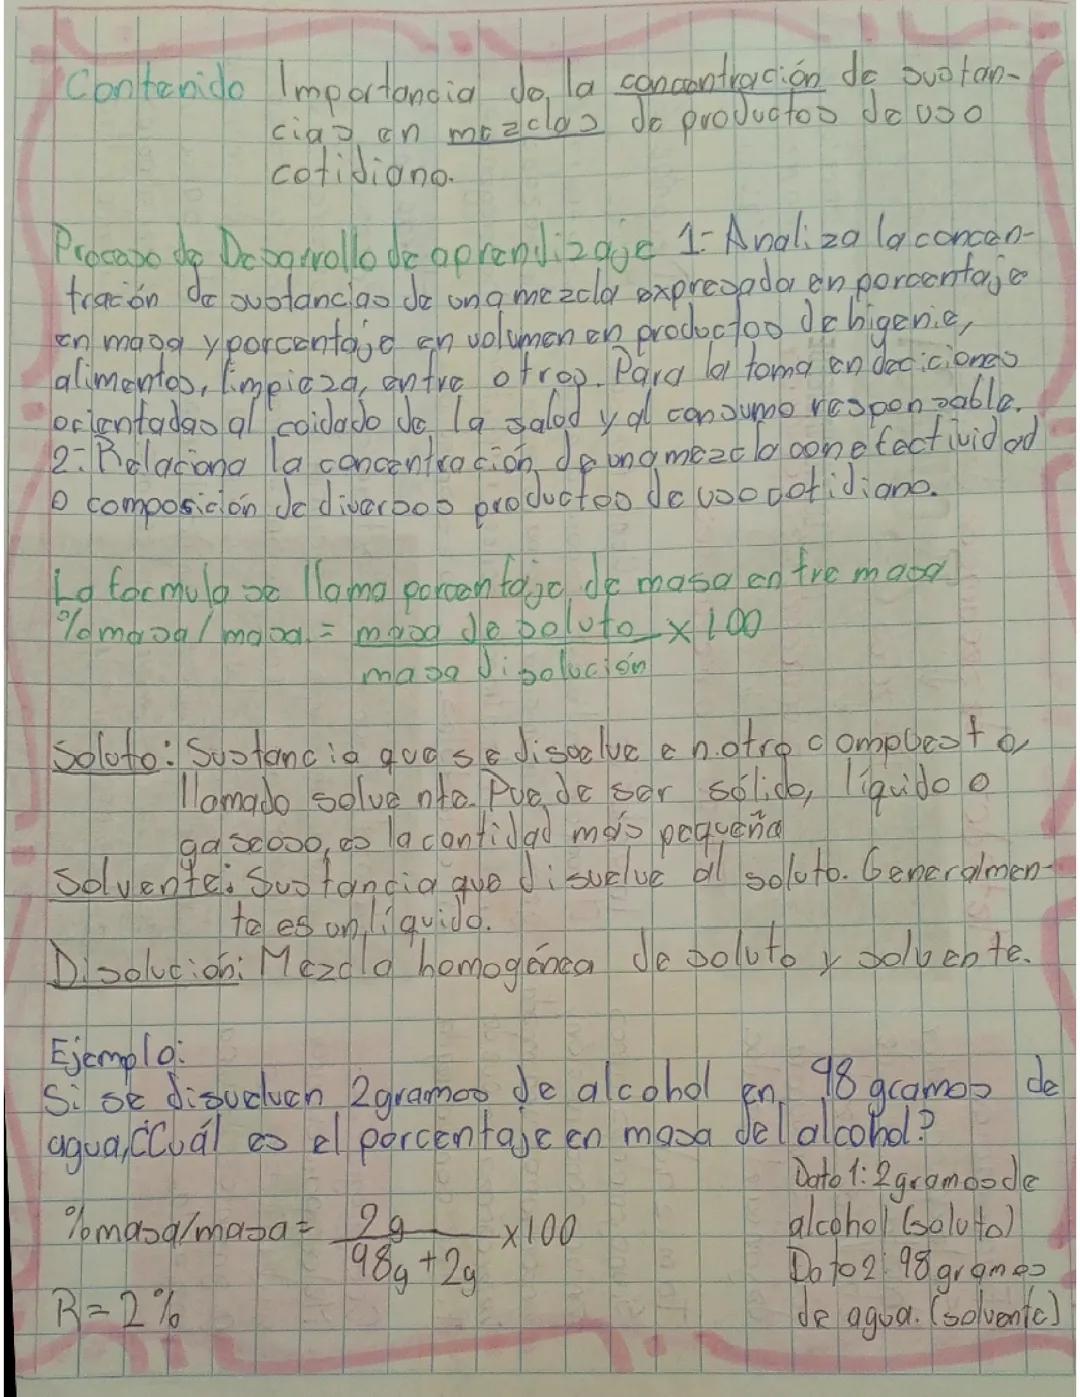 Contenido Importancia de la concentración de sustan-
cias en mezclas de productos de uso
cotidiano.
Proceso de Desarrollo de aprendizaje 1- Analiza la concen-
tración de sustancias de una mezcla expresada en porcentaje
en masa y porcentaje en volumen en productos de higenie,
alimentos, limpieza, entre otros. Para la toma en deciciones
orientadas al coidado de la salud y al consumo responsable.
2- Relaciona la concentración de una mezcla con efectividad
o composición de diversos productos de uso cotidiano.
La formula se llama porcentaje de masa entre masa
%masa/masa = masa de soluto x 100
masa disolución
Soluto: Sustancia que se disuelve en otro compuesto,
llamado solvente. Puede ser sólido, líquido o
gaseoso, es la cantidad más pequeña
Solvente: Sustancia que disuelve al soluto. Generalmen-
te es un líquido.
Disolución: Mezcla homogénea de soluto y solvente.
Ejemplo:
Si se disuelven 2gramos de alcohol en 98 gramos de
agua, ¿Cuál es el porcentaje en masa del alcohol?
Dato 1: 2 gramos de
alcohol (soluto)
Dato 2: 98 gramos
de agua. (solvente)
%masa/masa = 2g x100
98g + 2g
R = 2%